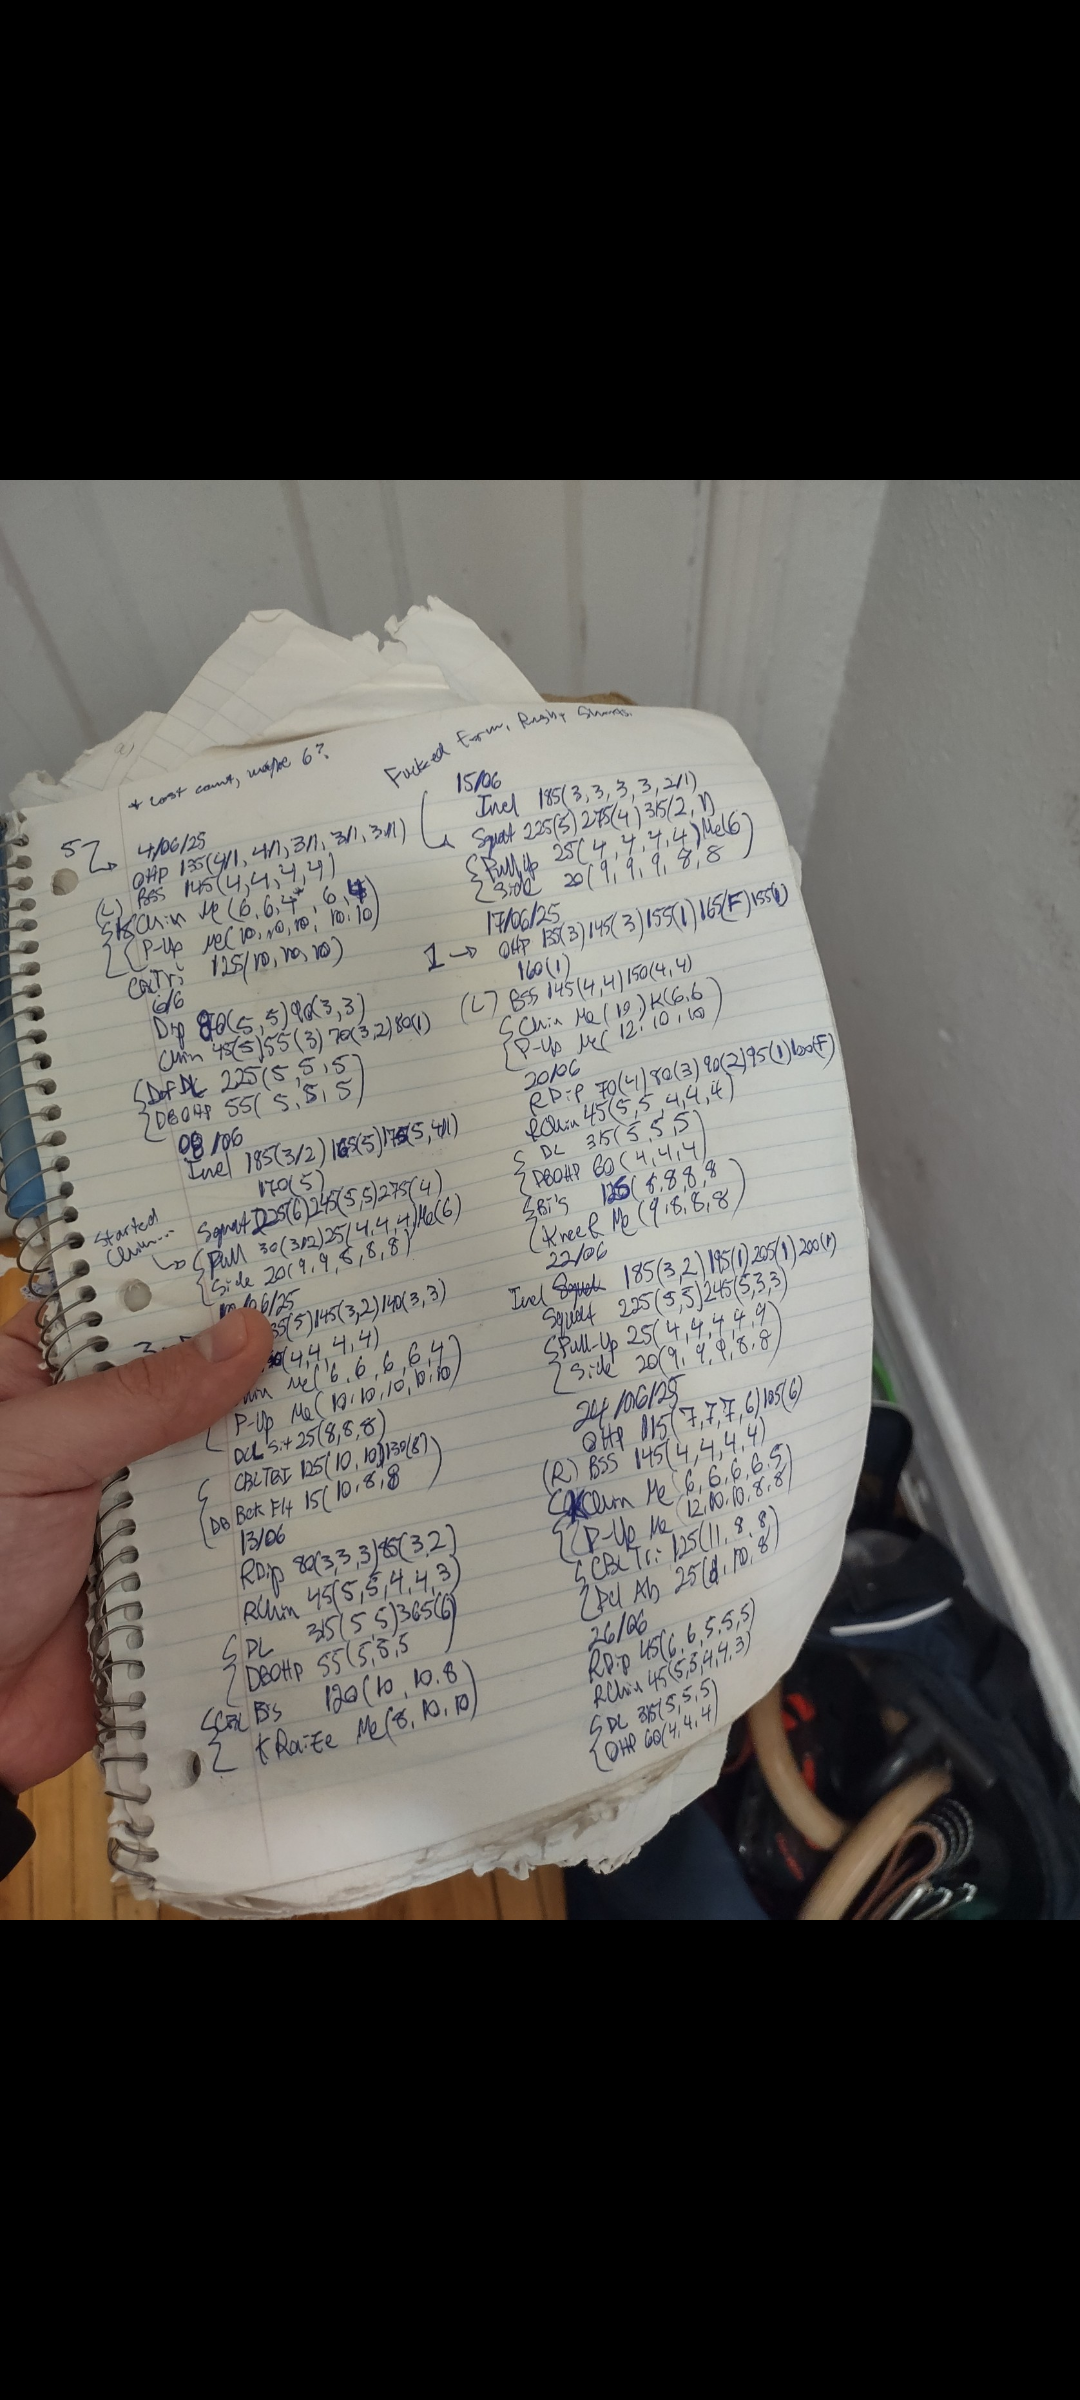 * Lost count, maybe 6?
5
4/06/25
OHP 135(4/1, 4/1, 3/1, 3/1, 3/1)
(L) BSS 145(4,4,4,4)
Chin Me(6,6,4*,6,4)
P-Up Me(10,10,10,10,10)
CBLTri 125(10,10,10)
6/6
Dip 80(5,5)90(3,3)
Chin 45(5)55(3)70(3,2)80(1)
Def DL 225(5,5,5)
DBOHP 55(5,5,5)
08/06
Incl 185(3/2)165(5)175(5,4/1)
170(5)
Squat 225(6)245(5,5)275(4)
Started
Chin...
Pull 30(3/2)25(4,4,4)Me(6)
Side 20(9,9,8,8,8)
6/25
35(5)145(3,2)140(3,3)
(4,4,4,4)
Me(6,6,6,6,4
P-Up Me(10,10,10,10,10)
Dcl Sit 25(8,8,8)
CBLTRI 125(10,10)130(8)
DB Bck Fly 15(10,8,8)
13/06
RDip 80(3,3,3)85(3,2)
RChin 45(5,5,4,4,3)
DL 315(5,5)365(6)
DBOHP 55(5,5,5)
CBL Bis 120(10,10,8
K Raize Me(8,10,10)
Fucked Form, Rugby Shoes.
15/06
Incl 185(3,3,3,3,2/1)
Squat 225(5)275(4)315(2,1)
Pull Up 25(4,4,4,4)Me(6)
Side 20(9,9,9,8,8
17/06/25
1 → OHP 135(3)145(3)155(1)165(F)155(1)
160(1)
(L) BSS 145(4,4)150(4,4)
Chin Me(10)K(6,6
P-Up Me(12,10,10)
20/06
RDip 70(4)80(3)90(2)95(1)100(F)
RChin 45(5,5,4,4,4)
DL 315(5,5,5)
DBOHP 60(4,4,4)
Bi's (8,8,8,8
Knee R Me(9,8,8,8)
22/06
Incl 185(3,2)195(1)205(1)200(1)
Squat 225(5,5)245(5,3,3)
Pull-Up 25(4,4,4,4,4)
Side 20(9,9,9,8,8)
24/06/25
OHP 115(7,7,7,6)105(6)
(R) BSS 145(4,4,4,4)
Chin Me(6,6,6,6,5
P-Up Me(12,10,10,8,8)
CBLTri 125(11,8,8)
Dcl Ab 25( ,10,8)
26/06
RDip 45(6,6,5,5,5)
RChin 45(5,5,4,4,3)
DL 315(5,5,5)
OHP 60(4,4,4)